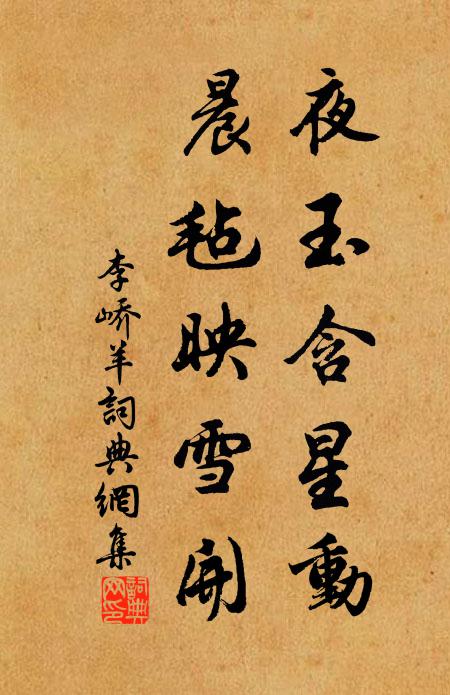 夜玉含星動
晨毡映雪開
李嶠羊詞典網集
詞典网印